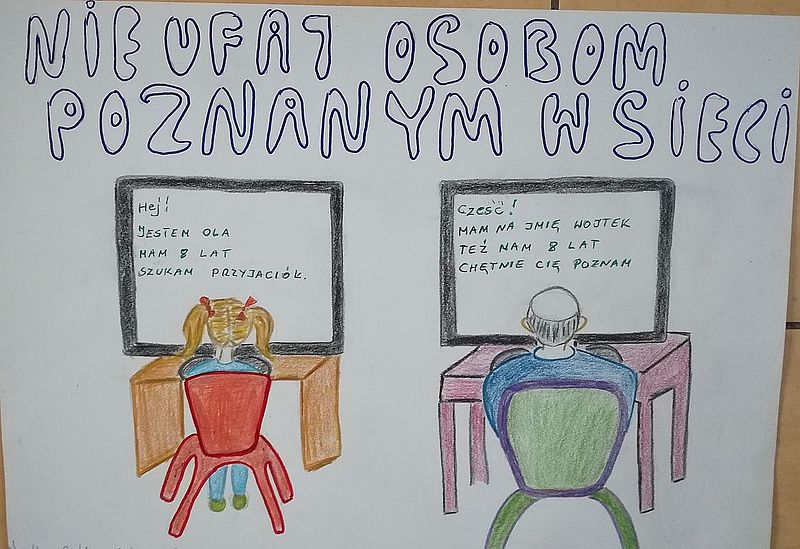 NIE UFAJ OSOBOM
POZNANYM W SIECI
Hej!
JESTEM OLA
MAM 8 LAT
SZUKAM PRZYJACIÓŁ.
CZEŚĆ!
MAM NA IMIĘ WOJTEK
TEŻ MAM 8 LAT
CHĘTNIE CIĘ POZNAM